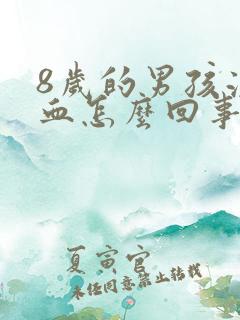 8歲的男孩流
血怎麼回事
夏寅官
未经同意禁止转载